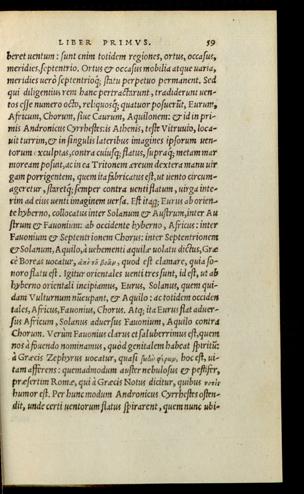 LIBER PRIMVS. 59
beret uentum: sunt enim totidem regiones, ortus, occasus,
meridies, septentrio. Ortus & occasus mobilia atque uaria,
meridies uerò septentrioq́; statu perpetuo permanent. Sed
qui diligentius rem hanc pertractarunt, tradiderunt uen-
tos esse numero octo, reliquosq́; quatuor posuerūt, Eurum,
Africum, Chorum, siue Caurum, Aquilonem: & id in pri-
mis Andronicus Cyrrhestes: is Athenis, teste Vitruuio, loca-
uit turrim, & in singulis lateribus imagines ipsorum uen-
torum exculptas, contra cuiusq́; flatus, supraq́; metam mar
moream posuit, ac in ea Tritonem æreum dextera manu uir
gam porrigentem, quem ita fabricatus est, ut uento circum-
ageretur, staretq́; semper contra uenti flatum, uirga inte-
rim ad eius uenti imaginem uersa. Est itaq; Eurus ab orien-
te hyberno, collocatus inter Solanum & Austrum, inter Au
strum & Fauonium: ab occidente hyberno, Africus: inter
Fauonium & Septentrionem Chorus: inter Septentrionem
& Solanum, Aquilo, à uehementi aquilæ uolatu dictus, Græ
cè Boreas uocatur, ἀπὸ τοῦ βοᾶν, quod est clamare, quia so-
noro flatu est. Igitur orientales uenti tres sunt, id est, ut ab
hyberno orientali incipiamus, Eurus, Solanus, quem qui-
dam Vulturnum nūcupant, & Aquilo: ac totidem occiden
tales, Africus, Fauonius, Chorus. Atq; ita Eurus flat aduer-
sus Africum, Solanus aduersus Fauonium, Aquilo contra
Chorum. Verùm Fauonius clarus et saluberrimus est, quem
nos à fouendo nominamus, quòd genitalem habeat spiritū:
à Græcis Zephyrus uocatur, quasi hoc est, ui-
tam afferens: quemadmodum auster nebulosus & pestifer,
præsertim Romæ, qui à Græcis Notus dicitur, quibus νοτὶς
humor est. Per hunc modum Andronicus Cyrrhestes osten-
dit, unde certi uentorum flatus spirarent, quem nunc ubi-